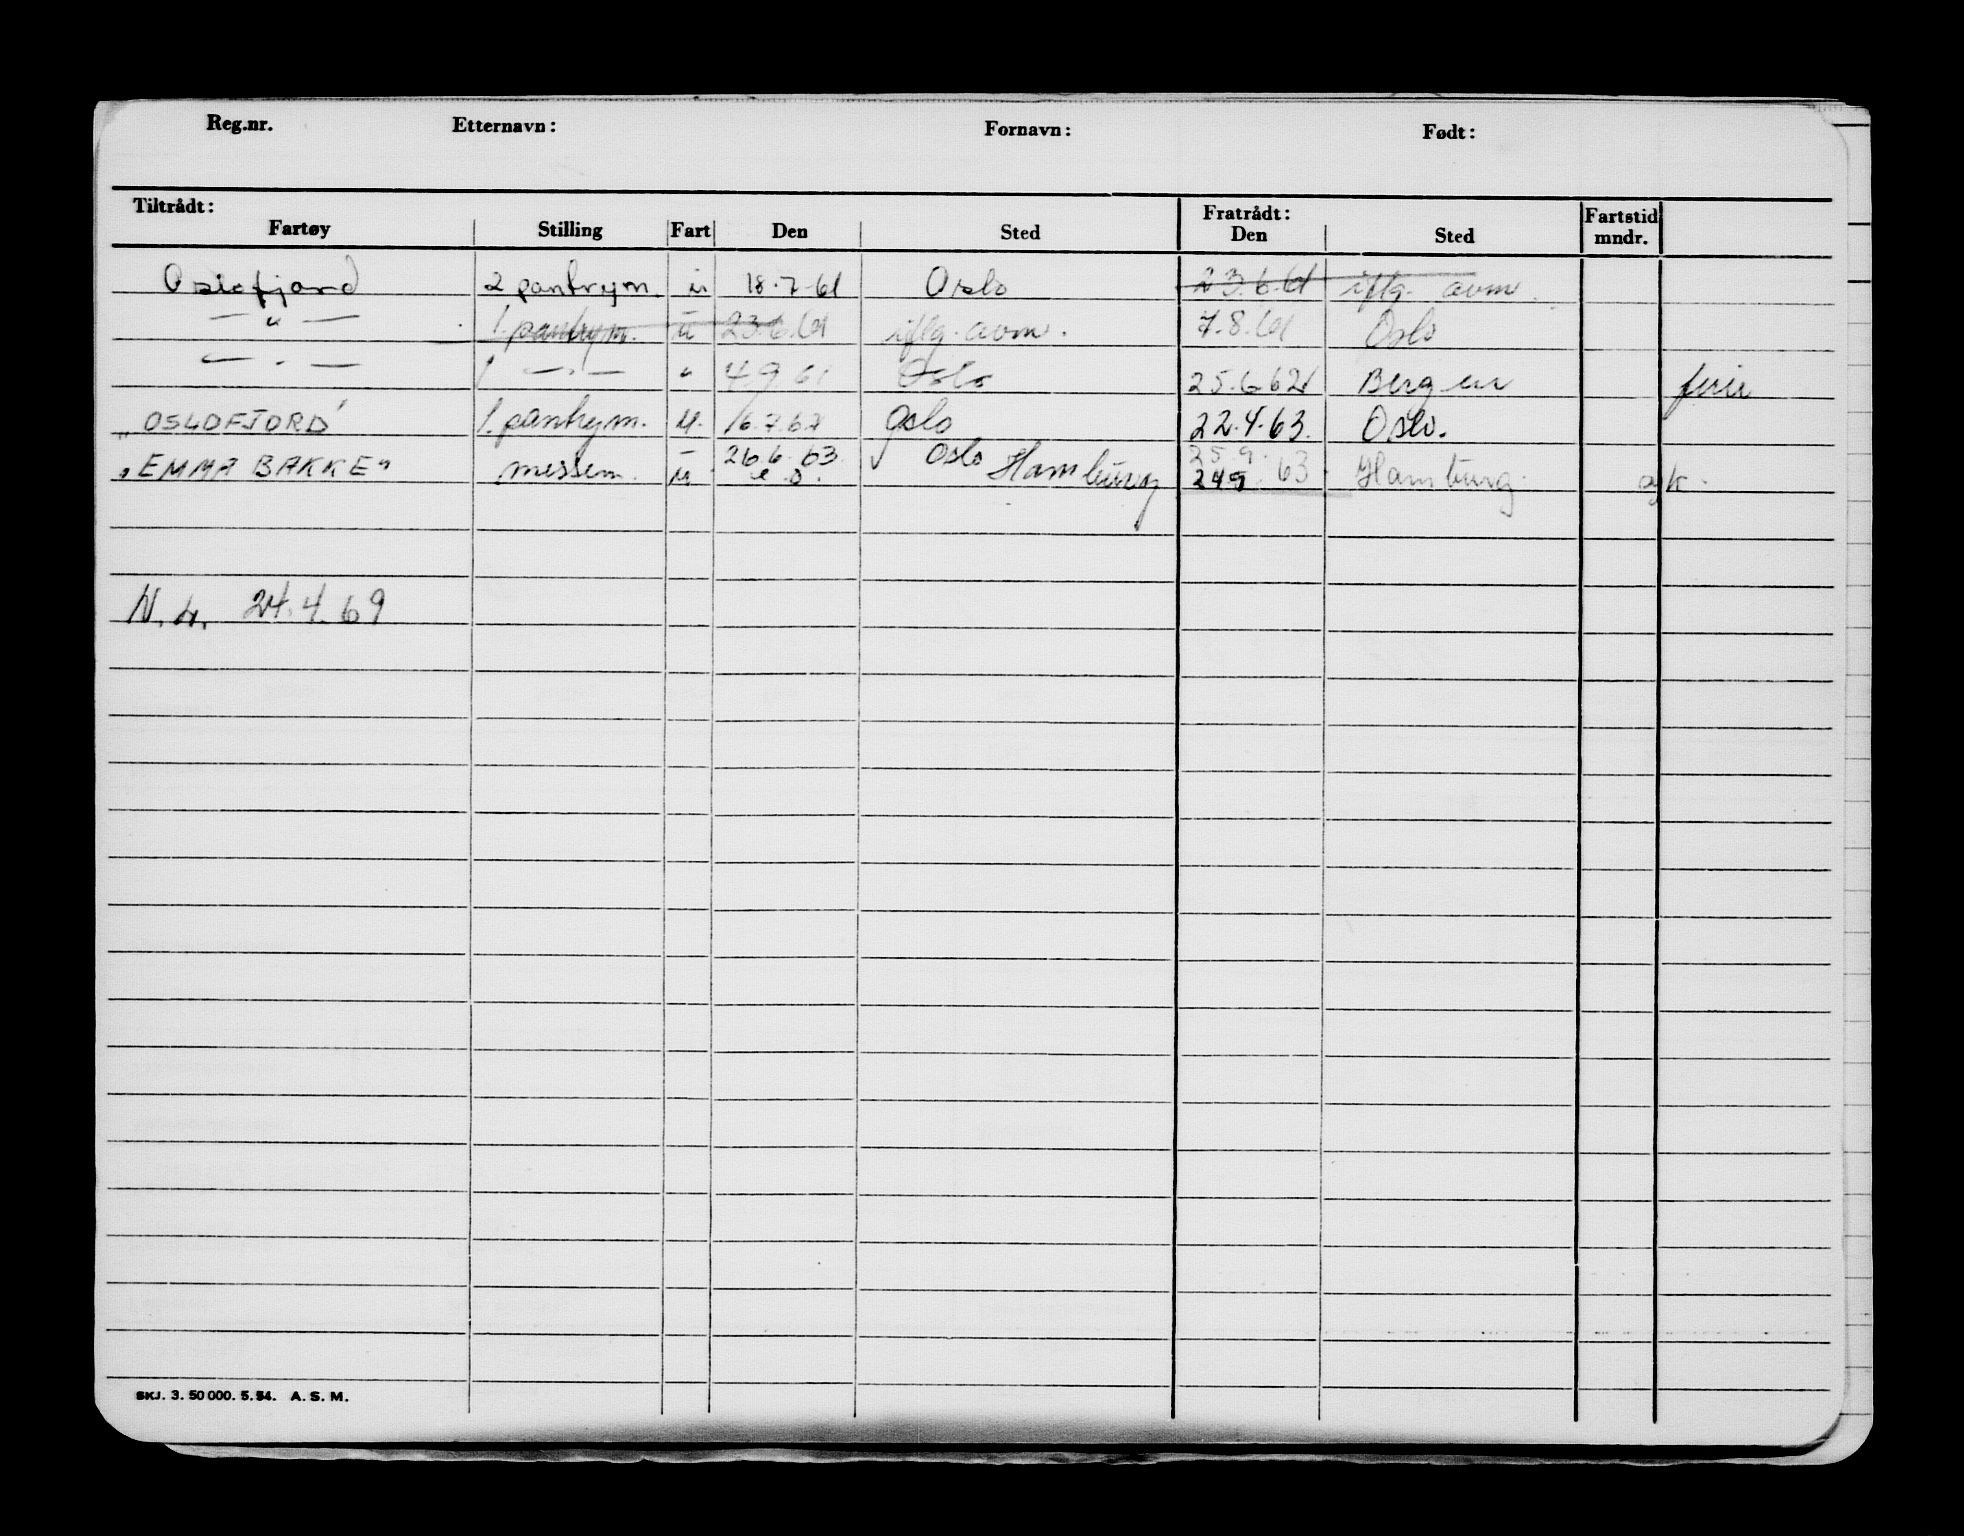 Reg.nr. Etternavn: Fornavn: Født:
Tiltrådt: Fratrådt: Fartstid
Fartøy Stilling Fart Den Sted Den Sted mndr.
Oslofjord 2 pantrym. u 18.7.61 Oslo 23.6.61 iflg. avm.
— " — 1. pantrym. u 23.6.61 iflg. avm. 7.8.61 Oslo
— " — 1 — " — " 4.9.61 Oslo 25.6.62 Bergen ferie
"OSLOFJORD" 1. pantrym. u. 16.7.62 Oslo 22.4.63. Oslo.
"EMMA BAKKE" messem. u 26.6.63. Oslo Hamburg 25.9. 24.9.63 Hamburg. ajk.
24.4.69
SKJ. 3. 50 000. 5. 54. A. S. M.